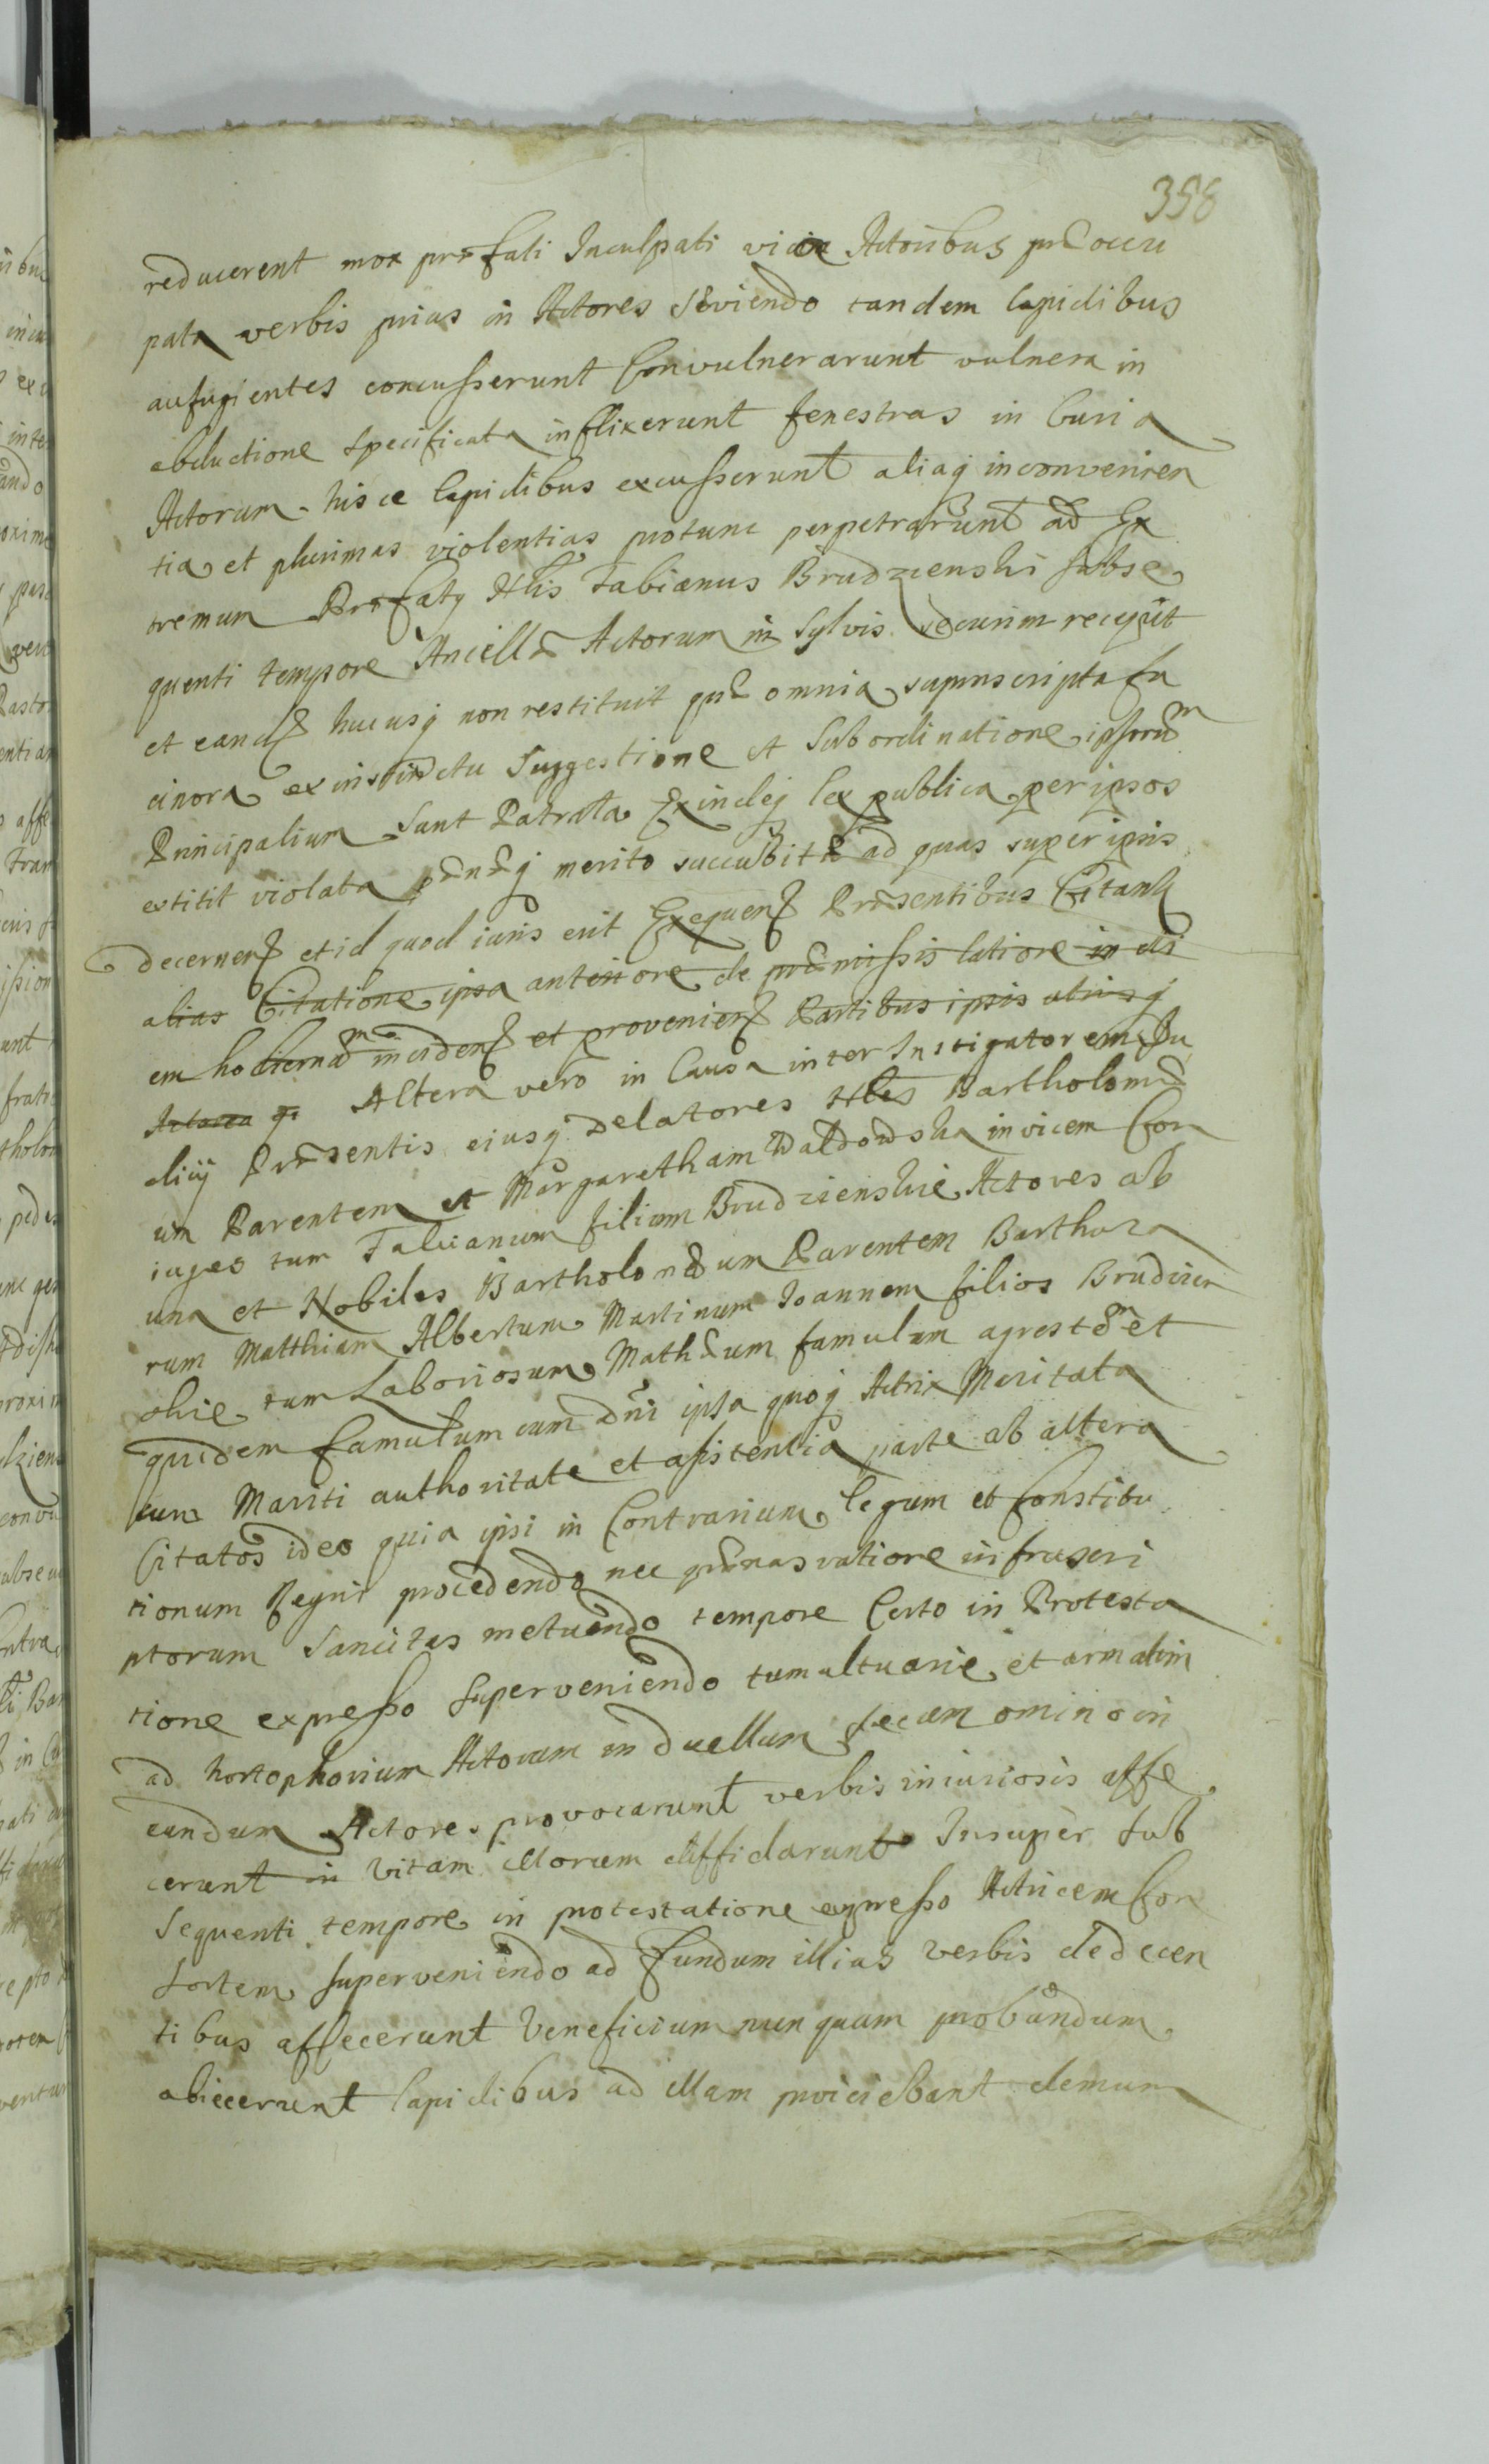 358
reducerent mox præfati Inculpati via Actoribus præoccu
pata verbis prius in Actores sæviendo tandem lapidibus
aufugientes concusserunt Convulnerarunt vulnera in
obductione specificata inflixerunt fenestras in Curia
Actorum hisce lapidibus excusserunt aliaq inconvenien
tia et plurimas violentias protunc perpetrarunt ad Ex
tremum Præfatq Nlis Fabianus Brudzienski subse
quenti tempore Ancillæ Actorum in Sylvis securim recepit
et eand hucusq non restituit quæ omnia suprascripta fa
cinora ex instinctu Suggestione et Subordinatione ipsorum
Principalium Sunt Patrata Exindeq lex publica per ipsos
extitit violata pænæq merito succubitæ ad quas super ipsis
decernend et id quod iuris erit Exequend Præsentibus Citant
alias Citatione ipsa anteriore de præmissis latiore in di
em hodiernam inciden et provenien Partibus ipsis utrisq
Altera vero in Causa inter Instigatorem Ju
dicij Præsentis eiusq Delatores Nles Bartholomæ
um Parentem et Margaretham Waldowska invicem Con
iuges tum Fabianum filium Brudzienskie Actores ab
una et Nobiles Bartholomæum Parentem Barthoza
rum Matthiam Albertum Martinum Joannem filios Brudzien
skie tum Laboriosum Mathæum famulum agrestem et
quidem famulum cum Dni ipsa quoq Actrix Maritata
cum Mariti authoritate et assistentia parte ab altera
Citatos ideo quia ipsi in Contrarium legum et Constitu
tionum Regni procedendo nec pænas ratione infrascri
ptorum Sancitas metuendo tempore Certo in Protesta
tione expresso Superveniendo tumultuarie et armatim
ad hortophorium Actorum in duellum secum omino in
eundum Actores provocarunt verbis iniuriosis affe
cerunt in vitam illorum diffidarunt Insuper sub
sequenti tempore in protestatione expresso Actricem Con
sortem superveniendo ad fundum illius verbis dedecen
tibus affecerunt Veneficium nunquam probandum
abiecerunt lapidibus ad illam proiciebant demum